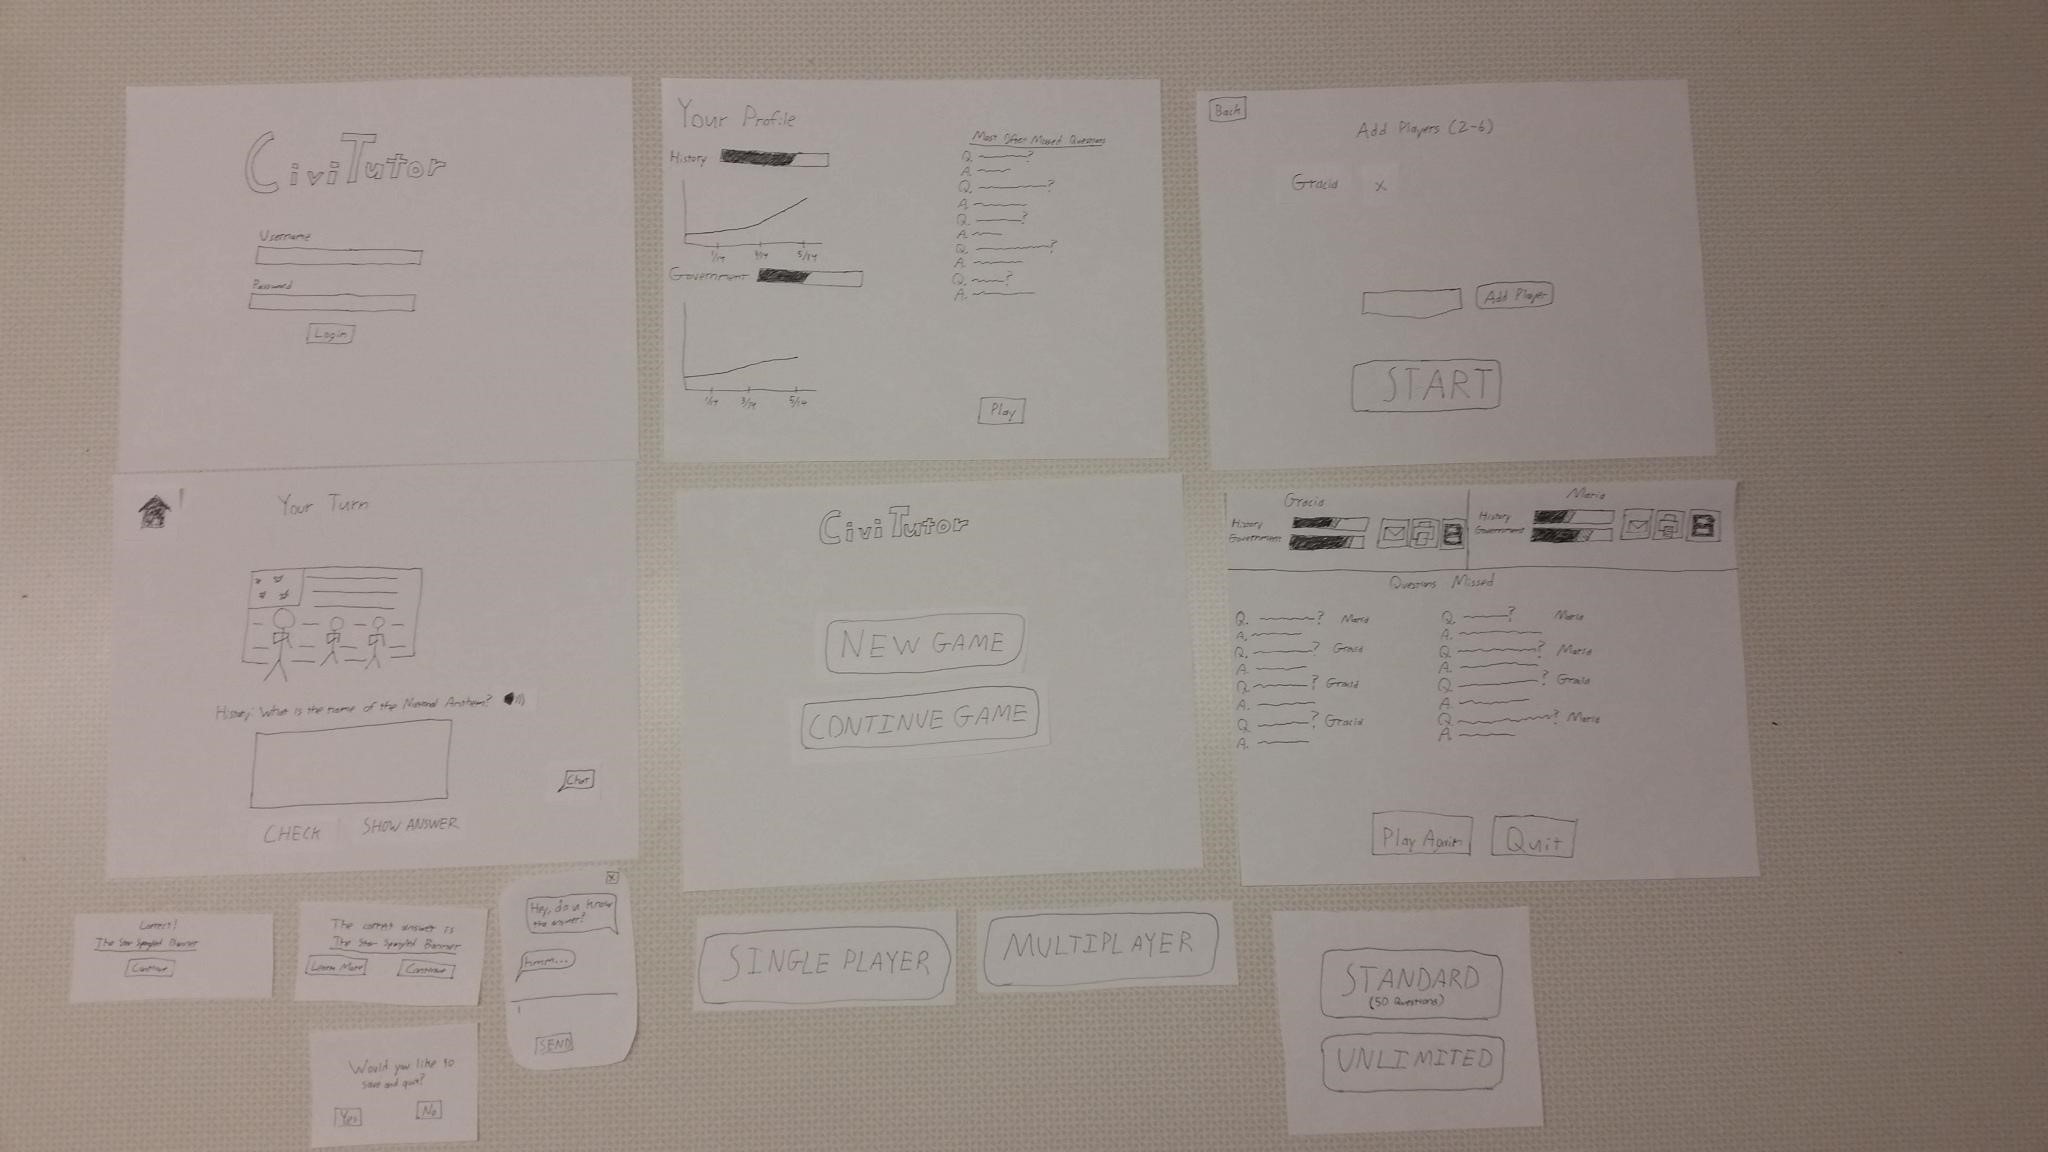 CiviTutor
Username
Password
Login
Your Profile
History
1/14 3/14 5/14
Government
1/14 3/14 5/14
Most Often Missed Questions
Q. ?
A.
Q. ?
A.
Q. ?
A.
Q. ?
A.
Q. ?
A.
Play
Back
Add Players (2-6)
Gracia X
Add Player
START
Your Turn
History: What is the name of the National Anthem?
Chat
CHECK SHOW ANSWER
CiviTutor
NEW GAME
CONTINUE GAME
Gracia
History
Government
Maria
History
Government
Questions Missed
Q. ? Maria
A.
Q. ? Gracia
A.
Q. ? Gracia
A.
Q. ? Gracia
A.
Q. ? Maria
A.
Q. ? Maria
A.
Q. ? Gracia
A.
Q. ? Maria
A.
Play Again Quit
Correct!
The Star Spangled Banner
Continue
The correct answer is
The Star Spangled Banner
Learn More Continue
Would you like to
save and quit?
Yes No
X
Hey, do u know
the answer?
hmm...
SEND
SINGLE PLAYER
MULTIPLAYER
STANDARD
(50 Questions)
UNLIMITED